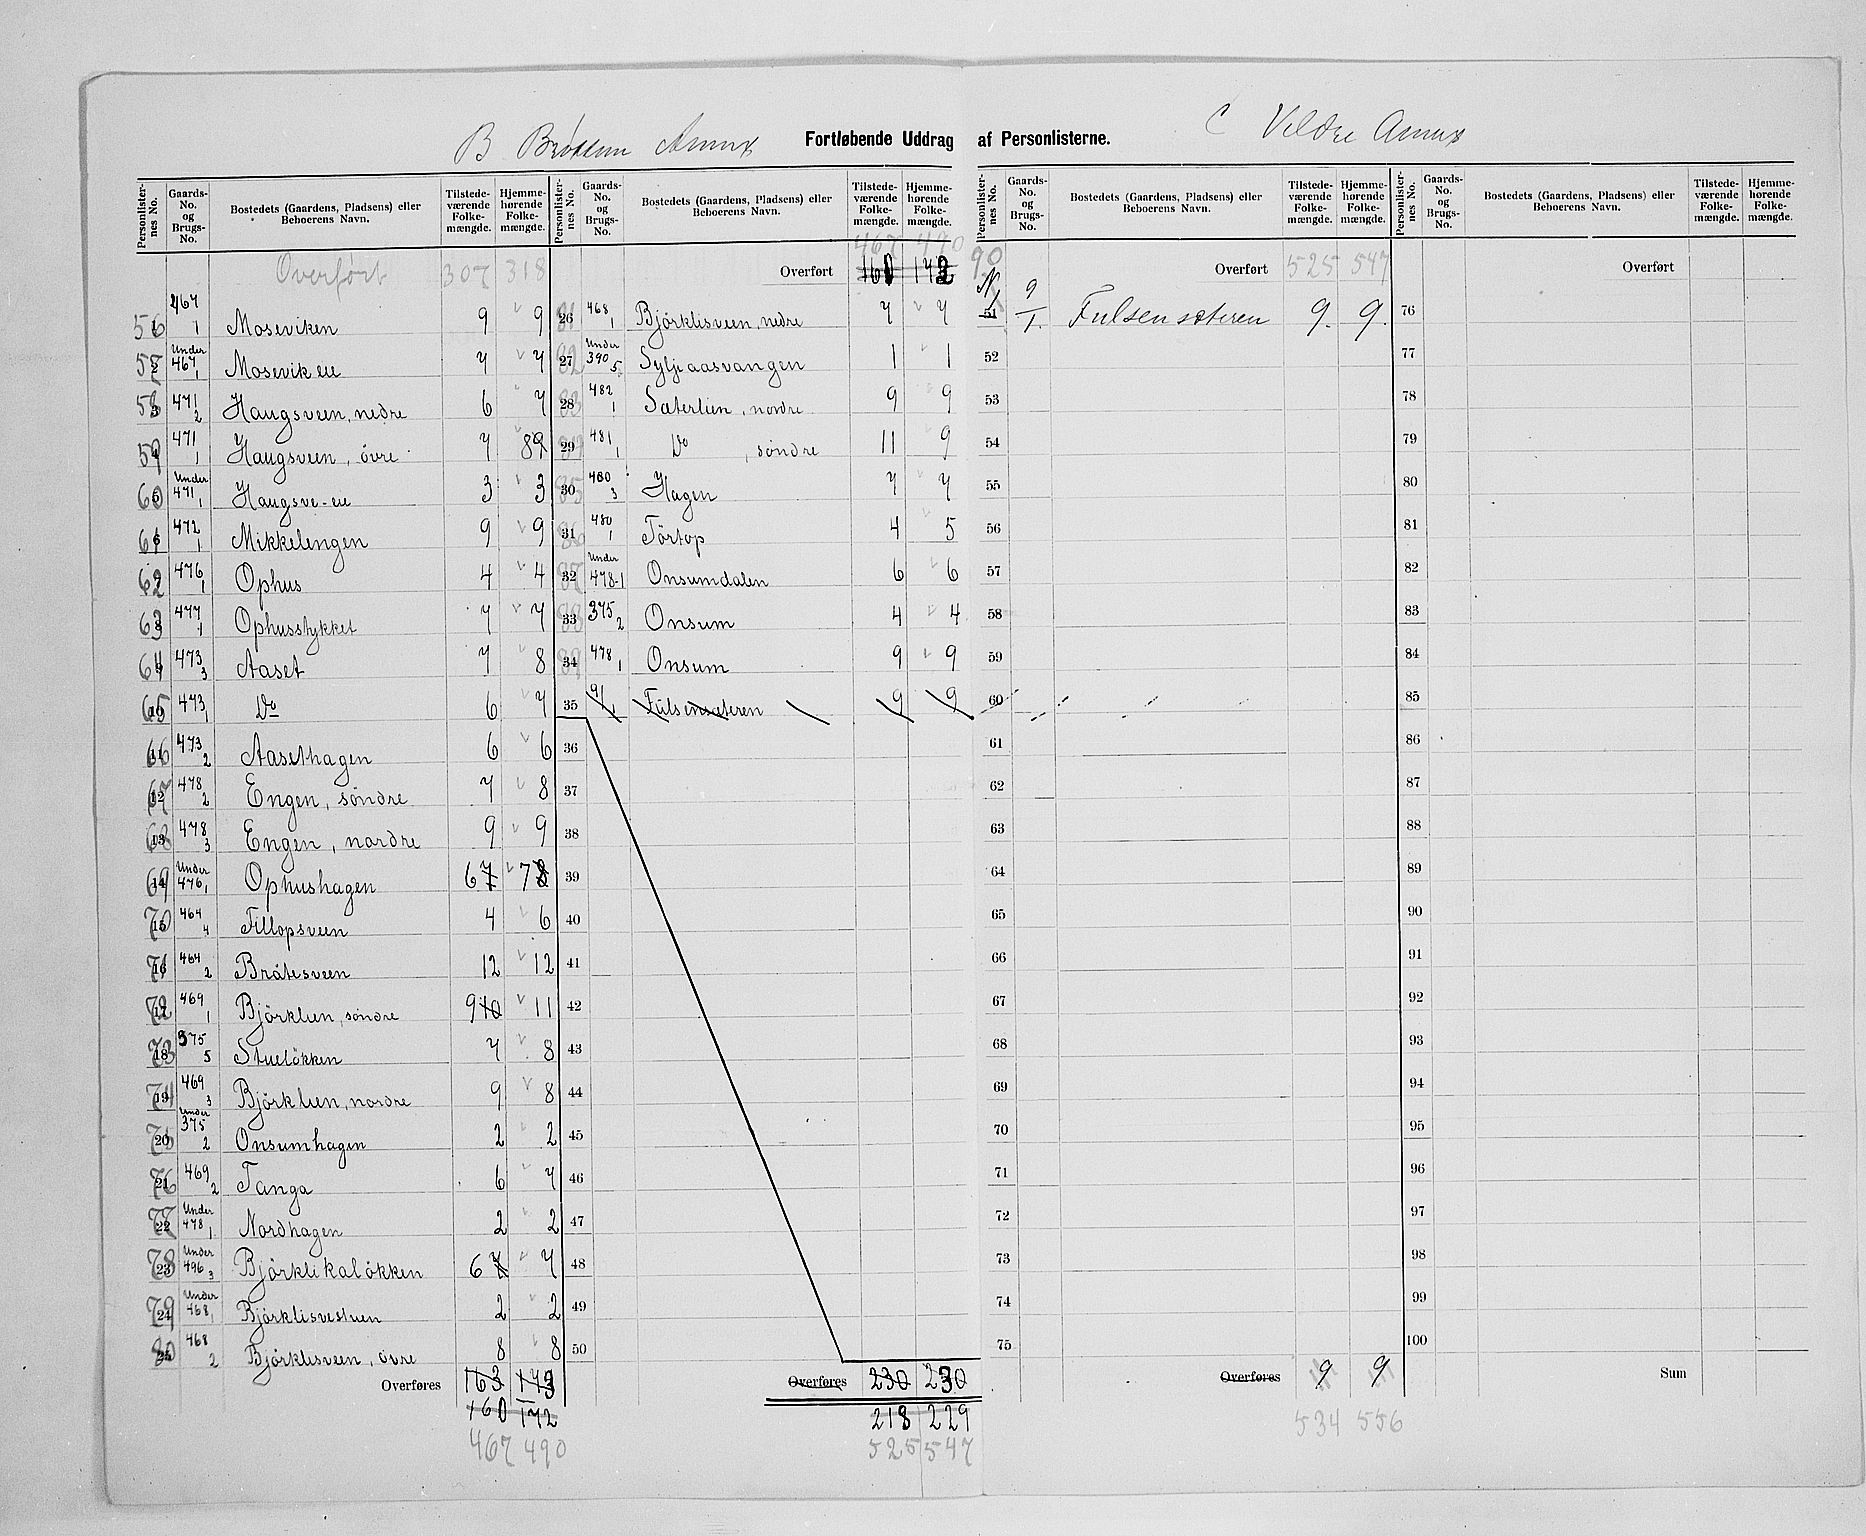 B Brøttum Annex
Fortløbende Uddrag af Personlisterne.
C Veldre Annex
Personlisternes No. Gaards-No. og Brugs-No. Bostedets (Gaardens, Pladsens) eller Beboerens Navn. Tilstedeværende Folkemængde. Hjemmehørende Folkemængde.
Overført 307 318
56 1 467/1 Moseviken 9 9
57 2 Under 467/1 Mosevik eie 7 7
58 3 471/2 Haugsveen, nedre 6 7
59 4 471/1 Haugsveen, övre 7 8 9
60 5 Under 471/1 Haugsve-eie 3 3
61 6 472/1 Mikkelengen 9 9
62 7 476/1 Ophus 4 4
63 8 477/1 Ophusstykket 7 7
64 9 473/3 Aaset 7 8
65 10 473/1 Do 6 7
66 11 473/2 Aasethagen 6 6
67 12 478/2 Engen, söndre 7 8
68 13 478/3 Engen, nordre 9 9
69 14 Under 476/1 Ophushagen 6 7 7 8
70 15 464/4 Fillopsveen 4 6
71 16 464/2 Bråtesveen 12 12
72 17 469/1 Björklien, söndre 9 10 11
73 18 375/5 Stuelökken 7 8
74 19 469/3 Björklien, nordre 9 8
75 20 Under 375/2 Onsumhagen 2 2
76 21 469/2 Tanga 6 7
77 22 Under 478/1 Nordhagen 2 2
78 23 Under 496/3 Björklikalökken 6 7 7
79 24 Under 468/1 Björklisvestuen 2 2
80 25 468/2 Björklisveen, övre 8 8
Overføres 163 173
160 172
467 490
Personlisternes No. Gaards-No. og Brugs-No. Bostedets (Gaardens, Pladsens) eller Beboerens Navn. Tilstedeværende Folkemængde. Hjemmehørende Folkemængde.
467 490
Overført 160 172
81 26 468/1 Björklisveen, nedre 7 7
82 27 Under 390/5 Syljeaasvangen 1 1
83 28 482/1 Sæterlien, nordre 9 9
84 29 481/1 Do, söndre 11 9
85 30 480/3 Hagen 7 7
86 31 480/1 Törtop 4 5
87 32 Under 478-1 Onsumdalen 6 6
88 33 375/2 Onsum 4 4
89 34 478/1 Onsum 9 9
35 9/1 Fulsensæteren 9 9
36
37
38
39
40
41
42
43
44
45
46
47
48
49
50
Overføres 230 230
218 229
525 547
Personlisternes No. Gaards-No. og Brugs-No. Bostedets (Gaardens, Pladsens) eller Beboerens Navn. Tilstedeværende Folkemængde. Hjemmehørende Folkemængde.
90
Overført 525 547
N 1 51 9/1. Fulsensæteren 9. 9.
52
53
54
55
56
57
58
59
60
61
62
63
64
65
66
67
68
69
70
71
72
73
74
75
Overføres 9 9
534 556
Personlisternes No. Gaards-No. og Brugs-No. Bostedets (Gaardens, Pladsens) eller Beboerens Navn. Tilstedeværende Folkemængde. Hjemmehørende Folkemængde.
Overført
76
77
78
79
80
81
82
83
84
85
86
87
88
89
90
91
92
93
94
95
96
97
98
99
100
Sum